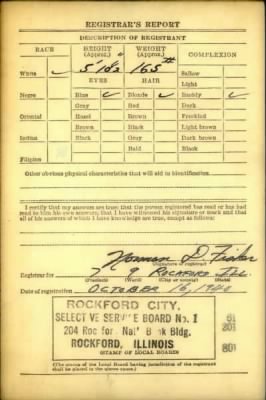 REGISTRAR'S REPORT
DESCRIPTION OF REGISTRANT
RACE HEIGHT (Approx.) WEIGHT (Approx.) COMPLEXION
White ✓ 5' 10½ 165# Sallow
EYES HAIR Light
Negro Blue ✓ Blonde ✓ Ruddy ✓
Gray Red Dark
Oriental Hazel Brown Freckled
Brown Black Light brown
Indian Black Gray Dark brown
Bald Black
Filipino
Other obvious physical characteristics that will aid in identification
I certify that my answers are true; that the person registered has read or has had
read to him his own answers; that I have witnessed his signature or mark and that
all of his answers of which I have knowledge are true, except as follows:
Norman D. Fisher
(Signature of registrar)
Registrar for 7 9 ROCKFORD ILL.
(Precinct) (Ward) (City or county) (State)
Date of registration OCTOBER 16, 1940
ROCKFORD CITY,
SELECTIVE SERVICE BOARD No. 1
204 Rockford Nat'l Bank Bldg.
ROCKFORD, ILLINOIS
(STAMP OF LOCAL BOARD)
61
201
(The stamp of the Local Board having jurisdiction of the registrant
shall be placed in the above space.)